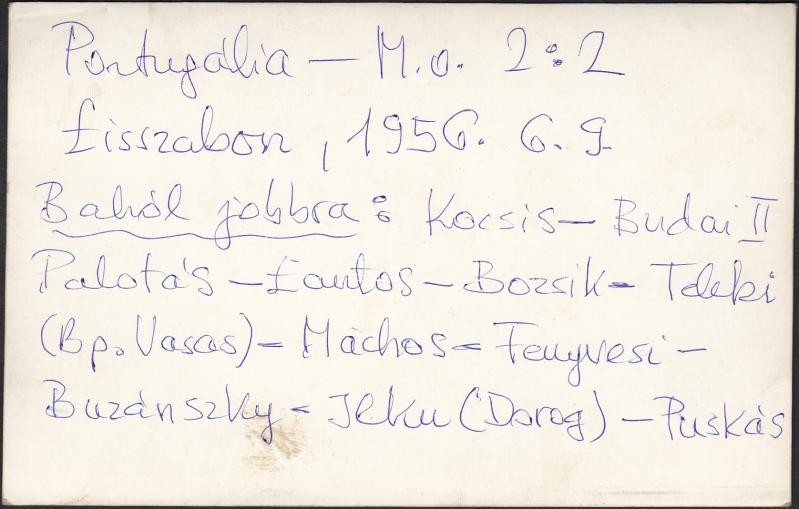 Portugália – M.o. 2:2
Lisszabon, 1956. 6. 9.
Balról jobbra: Kocsis – Budai II
Palotás – Lantos – Bozsik – Teleki
(Bp. Vasas) – Machos – Fenyvesi –
Buzánszky – Ilku (Dorog) – Puskás